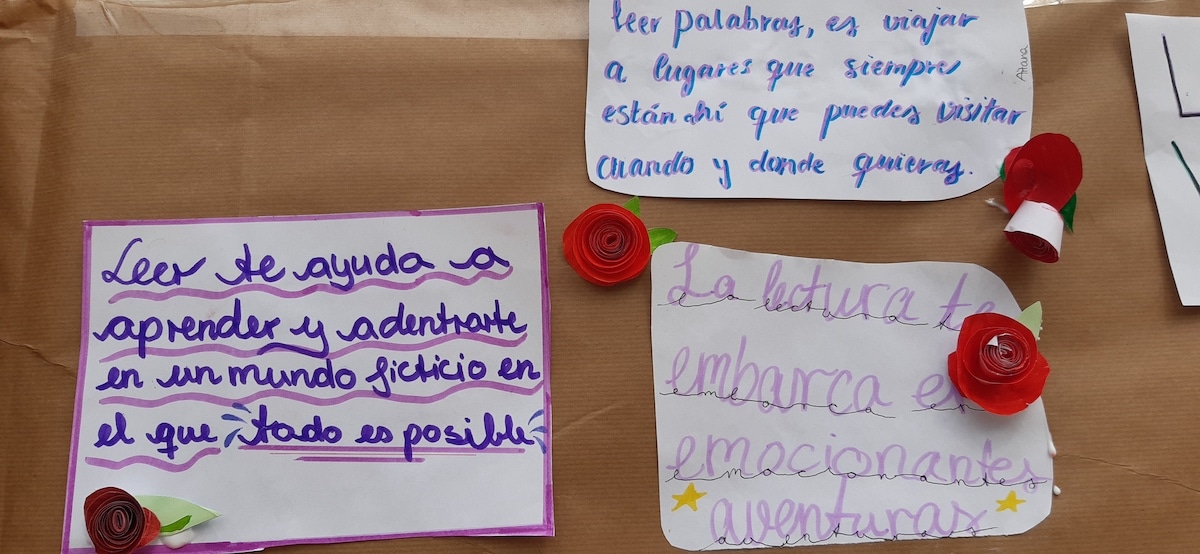 leer palabras, es viajar
a lugares que siempre
están ahí que puedes visitar
cuando y donde quieras.
Aitana
Leer te ayuda a
aprender y adentrarte
en un mundo ficticio en
el que todo es posible
La lectura te
embarca en
emocionantes
aventuras